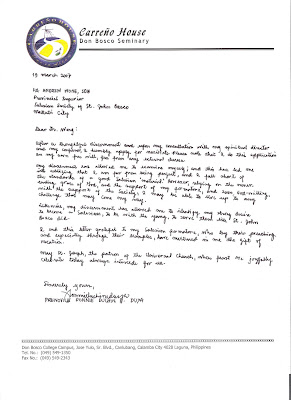 Carreño House
Don Bosco Seminary
19 March 2007
FR. ANDREW WONG, SDB
Provincial Superior
Salesian Society of St. John Bosco
Makati City
Dear Fr. Wong:
After a discernment and upon my consultation with my spiritual director
and my confessor, I humbly apply for Please note that I do this application
on my own free will, free from any external forces.
My discernment has allowed me to examine myself; and this has led me
into realizing that I am far from being perfect, and I fall short of
the standards of a good Salesian novice. However, relying on the never-
ending of God, and the support of my formators, and even
with the support of the Society, I may be able to live up to any
challenge that may come my way.
Likewise, my discernment has allowed me to identify my strong desire
to become a Salesian, to be with the young, to serve them like St. John
Bosco did.
I end this letter grateful to my Salesian formators, who by their preaching
and especially through their examples, have nurtured in me the gift of
vocation.
May St. Joseph, the patron of the Universal Church, whose feast we joyfully
celebrate today always intercede for us.
Sincerely yours,
Don Bosco College Campus, Jose Yulo, Sr. Blvd., Canlubang, Calamba City 4028 Laguna, Philippines
Tel. No.: (049) 549-1350
Fax No.: (049) 549-2343